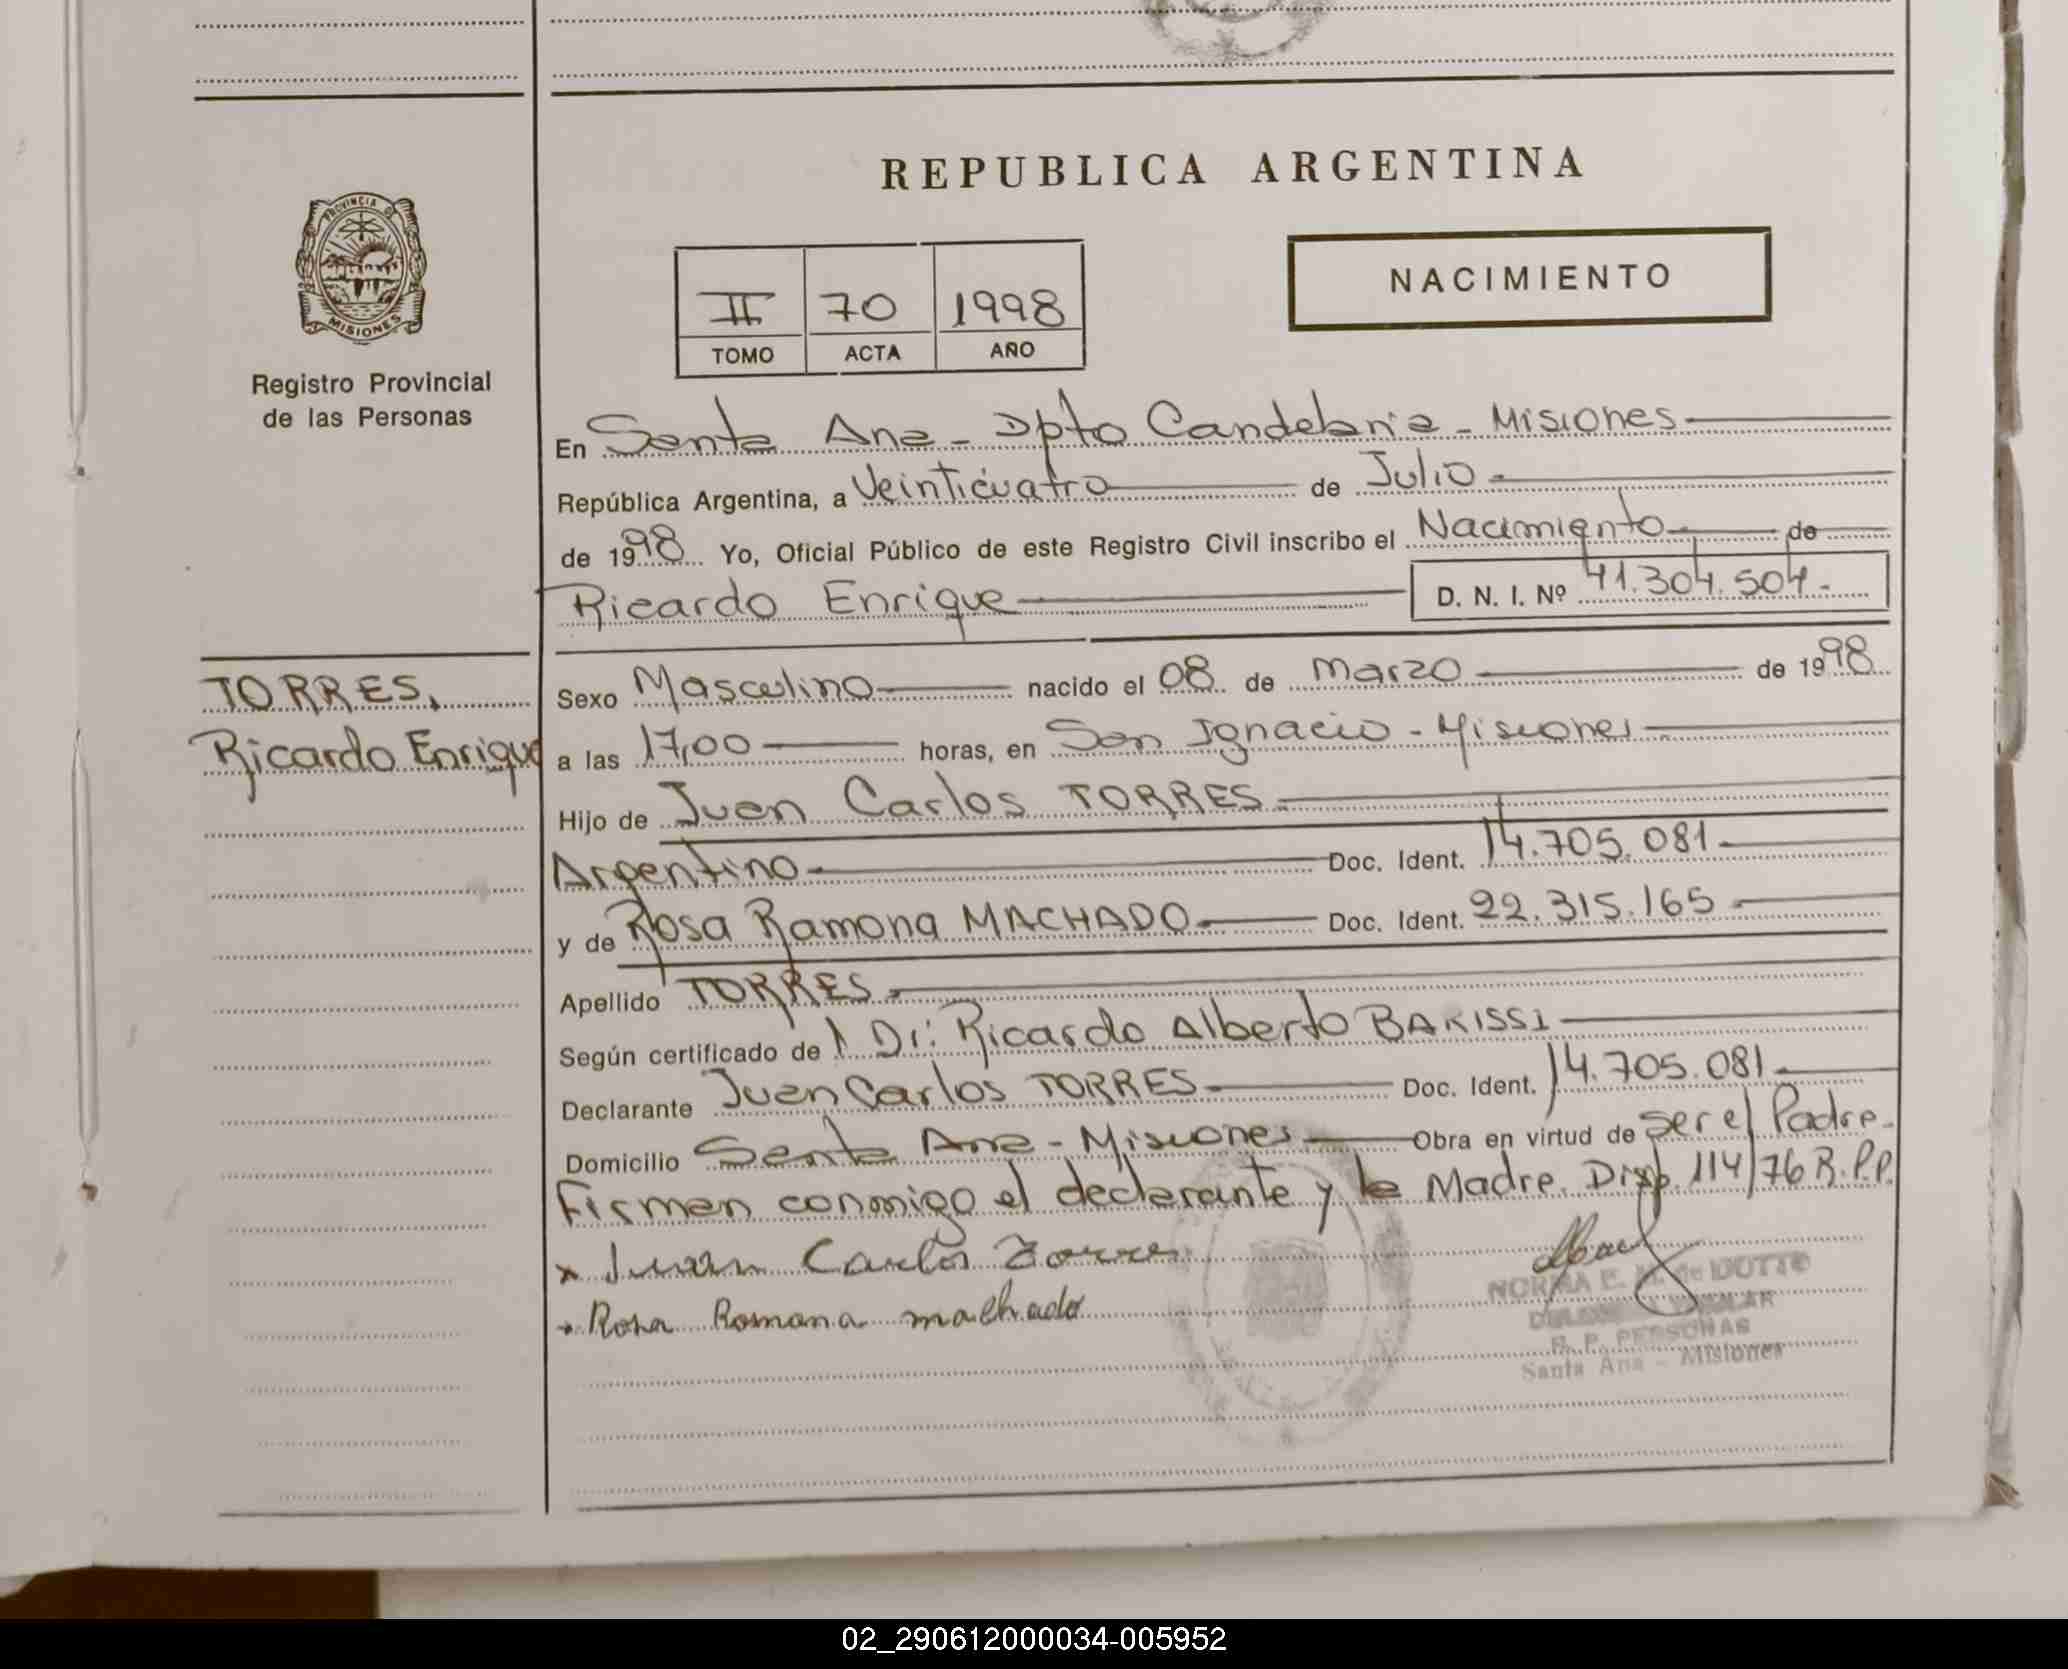 REPUBLICA ARGENTINA
PROVINCIA DE
MISIONES
Registro Provincial
de las Personas
II 70 1998
TOMO ACTA AÑO
NACIMIENTO
En Santa Ana - Dpto Candelaria - Misiones
República Argentina, a Veinticuatro de Julio
de 1998 Yo, Oficial Público de este Registro Civil inscribo el Nacimiento de
Ricardo Enrique D. N. I. Nº 41.304.504.-
TORRES,
Ricardo Enrique
Sexo Masculino nacido el 08 de Marzo de 1998
a las 17,00 horas, en San Ignacio - Misiones
Hijo de Juan Carlos TORRES
Argentino Doc. Ident. 14.705.081
y de Rosa Ramona MACHADO Doc. Ident. 22.315.165
Apellido TORRES
Según certificado de l Dr: Ricardo Alberto BARISSI
Declarante Juan Carlos TORRES Doc. Ident. 14.705.081
Domicilio Santa Ana - Misiones Obra en virtud de ser el Padre.
Firman conmigo el declarante y la Madre. Disp. 114/76 R.P.P.
x Juan Carlos Torres
x Rosa Romana machado
NORMA E. M. de DUTTO
R. P. PERSONAS
Santa Ana - Misiones
02_290612000034-005952